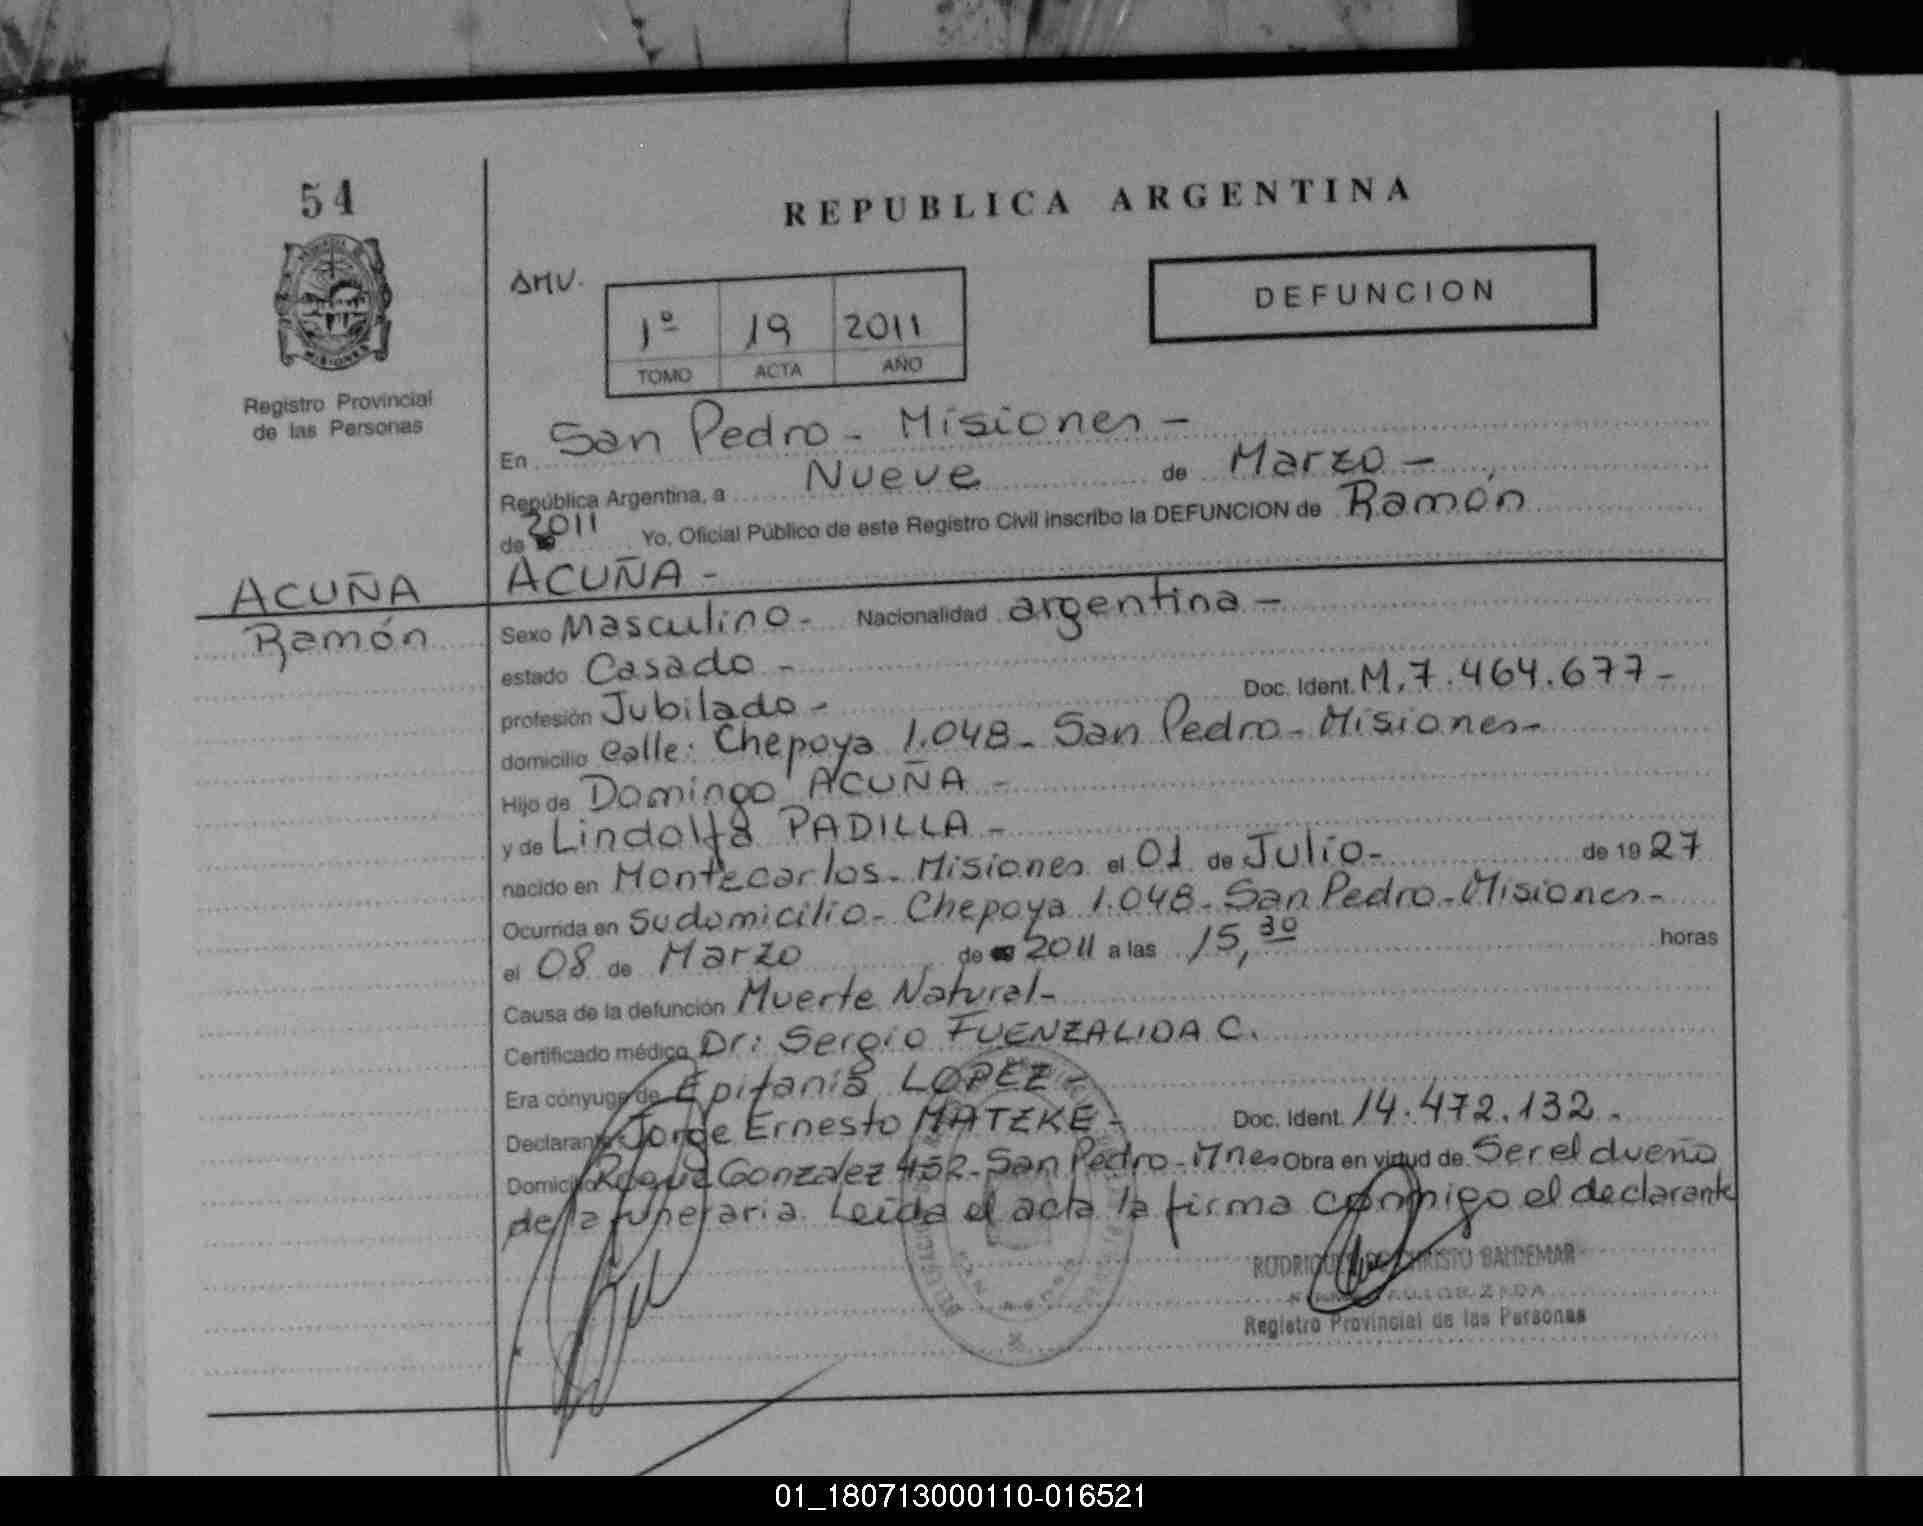 54
REPUBLICA ARGENTINA
AMU.
DEFUNCION
1º 19 2011
TOMO ACTA AÑO
MISIONES
Registro Provincial
de las Personas
En San Pedro - Misiones -
República Argentina, a Nueve de Marzo -
de 2011 Yo, Oficial Público de este Registro Civil inscribo la DEFUNCION de Ramón
ACUÑA -
ACUÑA
Ramón
Sexo Masculino - Nacionalidad argentina -
estado Casado -
profesión Jubilado - Doc. Ident. M. 7.464.677 -
domicilio Calle: Chepoya 1.048 - San Pedro - Misiones -
Hijo de Domingo ACUÑA -
y de Lindolfa PADILLA -
nacido en Montecarlos - Misiones el 01 de Julio - de 1927
Ocurrida en Sudomicilio - Chepoya 1.048 - San Pedro - Misiones -
el 08 de Marzo de 2011 a las 15,30 horas
Causa de la defunción Muerte Natural -
Certificado médico Dr: Sergio FUENZALIDA C.
Era cónyuge de Epifania LOPEZ -
Declarante Jorge Ernesto MATZKE - Doc. Ident. 14.472.132 -
Domicilio Roque Gonzalez 452 - San Pedro - Mnes Obra en virtud de Ser el dueño
de la funeraria. Leida el acta la firma conmigo el declarante
CHRISTO BALDEMAR
Registro Provincial de las Personas
01_180713000110-016521